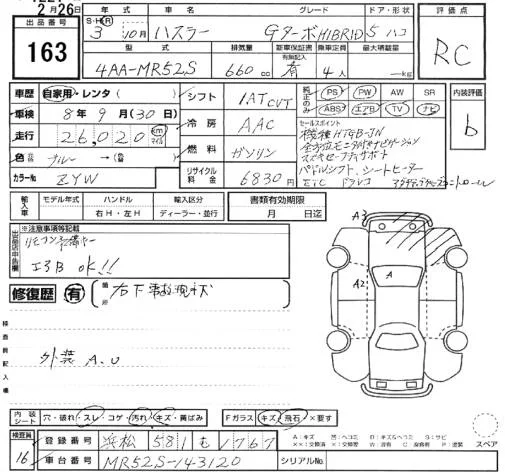 2月26日
出品番号
163
年式
S・H・R
3 10月
車名
ハスラー
グレード
Gターボ HIBRID
ドア・形状
5 ハコ
評価点
RC
型式
4AA-MR52S
排気量
660 cc
新車保証書
有無記入
有
乗車定員
4人
最大積載量
kg
車歴 自家用・レンタ( )
シフト
IAT CVT
純正のみ PS PW AW SR
ABS エアB TV ナビ
内装評価
b
車検 8年9月(30日)
冷房
AAC
セールスポイント
走行 26,020 km マイル
機種HTGB-JN
全方位モニタ付きナビゲーション
燃料
ガソリン
スズキセーフティサポート
色 ブルー → (色 )
パドルシフト、シートヒーター
カラーNo ZYW
リサイクル料金
6830円
ETC ドラレコ アダプティブクルーズコントロール
輸入車
モデル年式
年
ハンドル
右H・左H
輸入区分
ディーラー・並行
書類有効期限
月 日迄
出品店申告欄
※注意事項等記載
エアB OK!!
修復歴 有
箇所
検査員記入欄
外装 A.U
A3
A2
A
内装シート 穴・破れ・スレ・コゲ・汚れ・キズ・黄ばみ
Fガラス キズ・飛石・×要す
スペア
検査員
16
登録番号 浜松 581 も 1767
車台番号 MR52S-143120
シリアルNo.